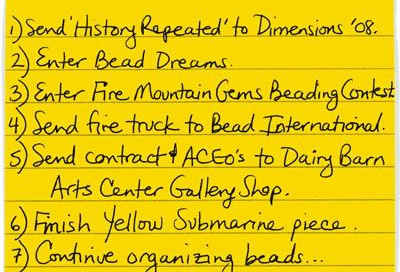 1) Send 'History Repeated' to Dimensions '08.
2) Enter Bead Dreams.
3) Enter Fire Mountain Gems Beading Contest
4) Send fire truck to Bead International.
5) Send contract & ACEO's to Dairy Barn
Arts Center Gallery Shop.
6) Finish Yellow Submarine piece.
7) Continue organizing beads...